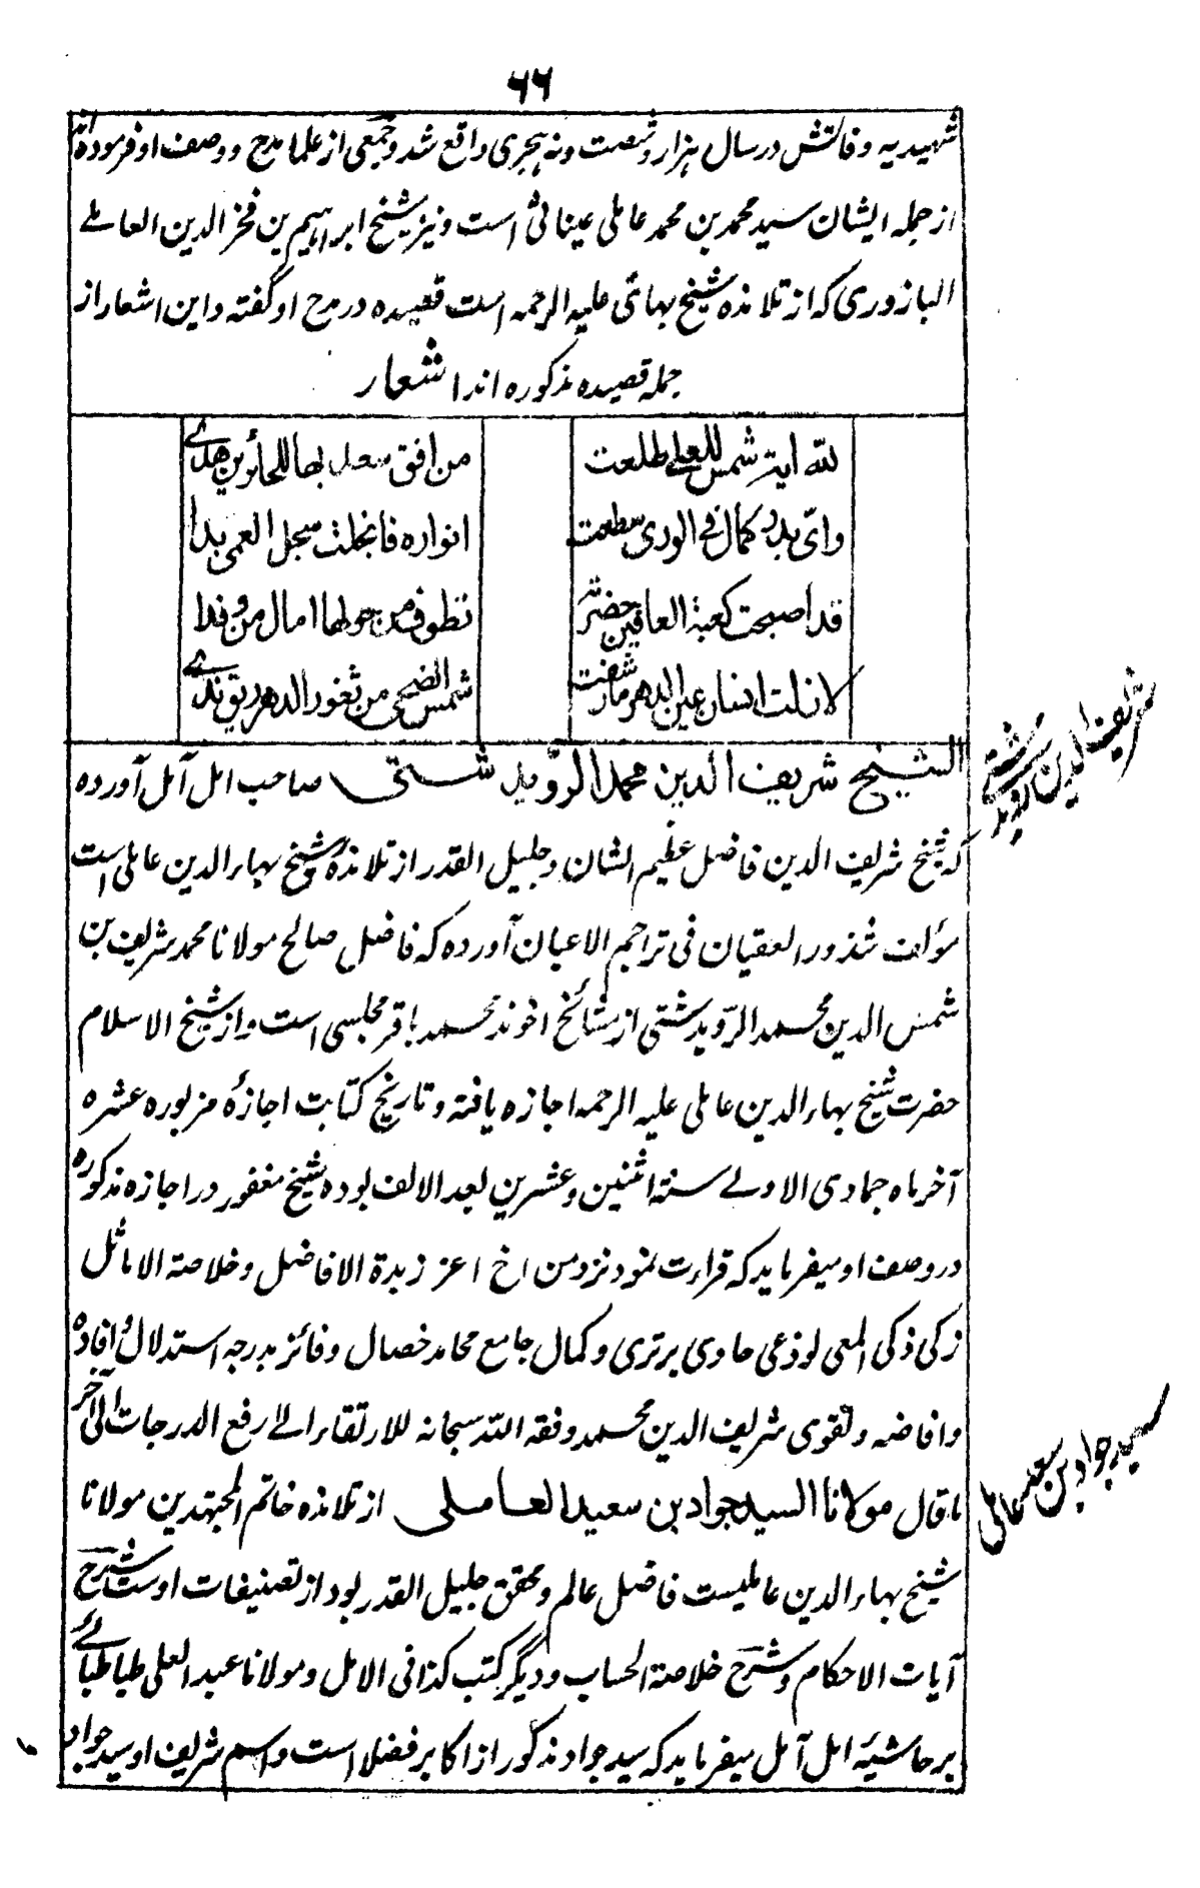 ۶۶
شهیدیه وفاتش در سال هزار و شصت و نه هجری واقع شد و جمعی از علما مدح و وصف او فرموده اند
از جمله ایشان سید محمد بن محمد عاملی عیناثی است و نیز شیخ ابراهیم بن فخر الدین العاملے
البازوری که از تلامذه شیخ بهائی علیه الرحمه است قصیده در مدح او گفته و این اشعار از
جمله قصیده مذکوره اند اشعار
لله ایة شمس للعلے طلعت من افق سعد بها للحائرین هدے
وای بدر کمال فی الوری سطعت انواره فانجلت سجل العمی بدا
قد اصبحت کعبة العافین حضرته تطوف من حولها امال من وفدا
لا زلت انسان عین الدهر ما رشفت شمس الضحی من ثغور الدهر ریق ندے
الشیخ شریف الدین محمد الرویدشتی صاحب امل آمل آورده
که شیخ شریف الدین فاضل عظیم الشان و جلیل القدر از تلامذهٔ شیخ بهاء الدین عاملی است
مؤلف شذور العقیان فی تراجم الاعیان آورده که فاضل صالح مولانا محمد شریف بن
شمس الدین محمد الرّویدشتی از مشائخ اخوند محمد باقر مجلسی است و از شیخ الاسلام
حضرت شیخ بهاء الدین عاملی علیه الرحمه اجازه یافته و تاریخ کتابت اجازهٔ مزبوره عشره
آخر ماه جمادی الاولے سنة اثنین و عشرین بعد الالف بوده شیخ مغفور در اجازه مذکوره
در وصف او میفرماید که قراءت نمود نزد من اخ اعز زبدة الافاضل و خلاصة الاماثل
زکی ذکی المعی لوذعی حاوی برتری و کمال جامع محامد خصال و فائز بدرجه استدلال و افاده
و افاضه و تقوی شریف الدین محمد وفقه الله سبحانه للارتقاء الے ارفع الدرجات الی آخر
ما قال مولانا السید جواد بن سعید العاملی از تلامذه خاتم المجتهدین مولانا
شیخ بهاء الدین عاملیست فاضل عالم و محقق جلیل القدر بود از تصنیفات اوست شرح
آیات الاحکام و شرح خلاصة الحساب و دیگر کتب کذا فی الامل و مولانا عبد العلی طباطبائے
بر حاشیهٔ امل آمل میفرماید که سید جواد مذکور از اکابر فضلا است و اسم شریف او سید جواد
شریف الدین رویدشتی
سید جواد بن سعید عاملی